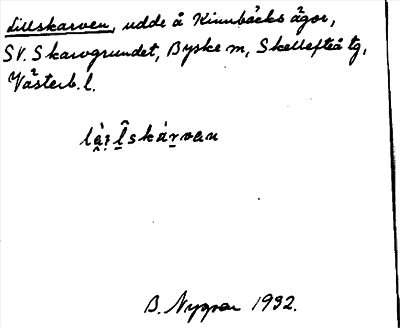 Lillskarven, udde å Kinnbäcks ägor,
SV. Skarvgrundet, Byske m, Skellefteå tg,
Västerb. l.
B. Nygren 1932.